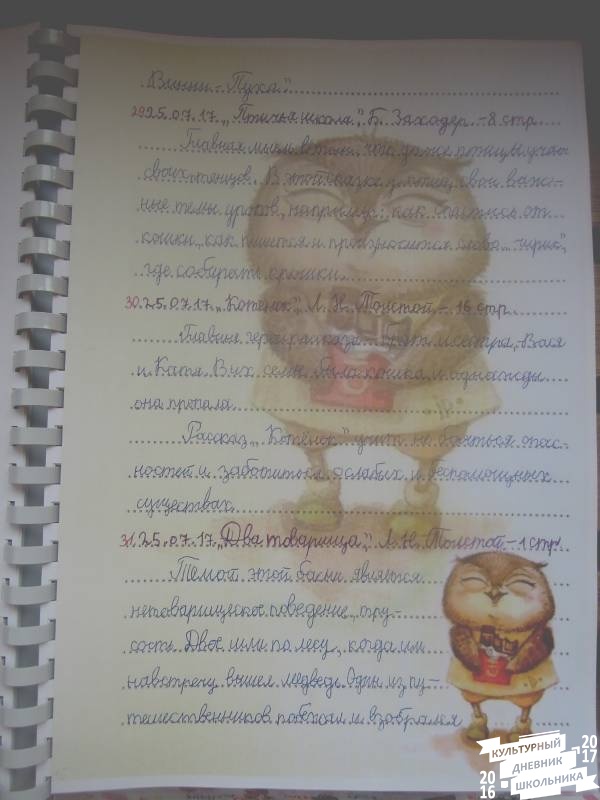 Винни-Пуха".
29 25.07.17. "Птичья школа", Б. Заходер. -8 стр.
Главная мысль в том, что даже птицы учат
своих птенцов. В этой сказке у птиц свои важ-
ные темы уроков, например: как спастись от
кошки, как пишется и произносится слово "чирик",
где собирать крошки.
30. 25.07.17. "Котёнок", Л. Н. Толстой. - 16 стр.
Главные герои рассказа брат и сестра, Вася
и Катя. В их семье была кошка и однажды
она пропала.
Рассказ "Котёнок" учит не бояться опас-
ностей и заботиться о слабых и беспомощных
существах.
31. 25.07.17. "Два товарища", Л. Н. Толстой - 1 стр.
Темой этой басни является
нетоварищеское поведение, тру-
сость. Двое шли по лесу, когда им
навстречу вышел медведь. Один из пу-
тешественников побежал и взобрался
КУЛЬТУРНЫЙ
ДНЕВНИК
ШКОЛЬНИКА
2016
2017